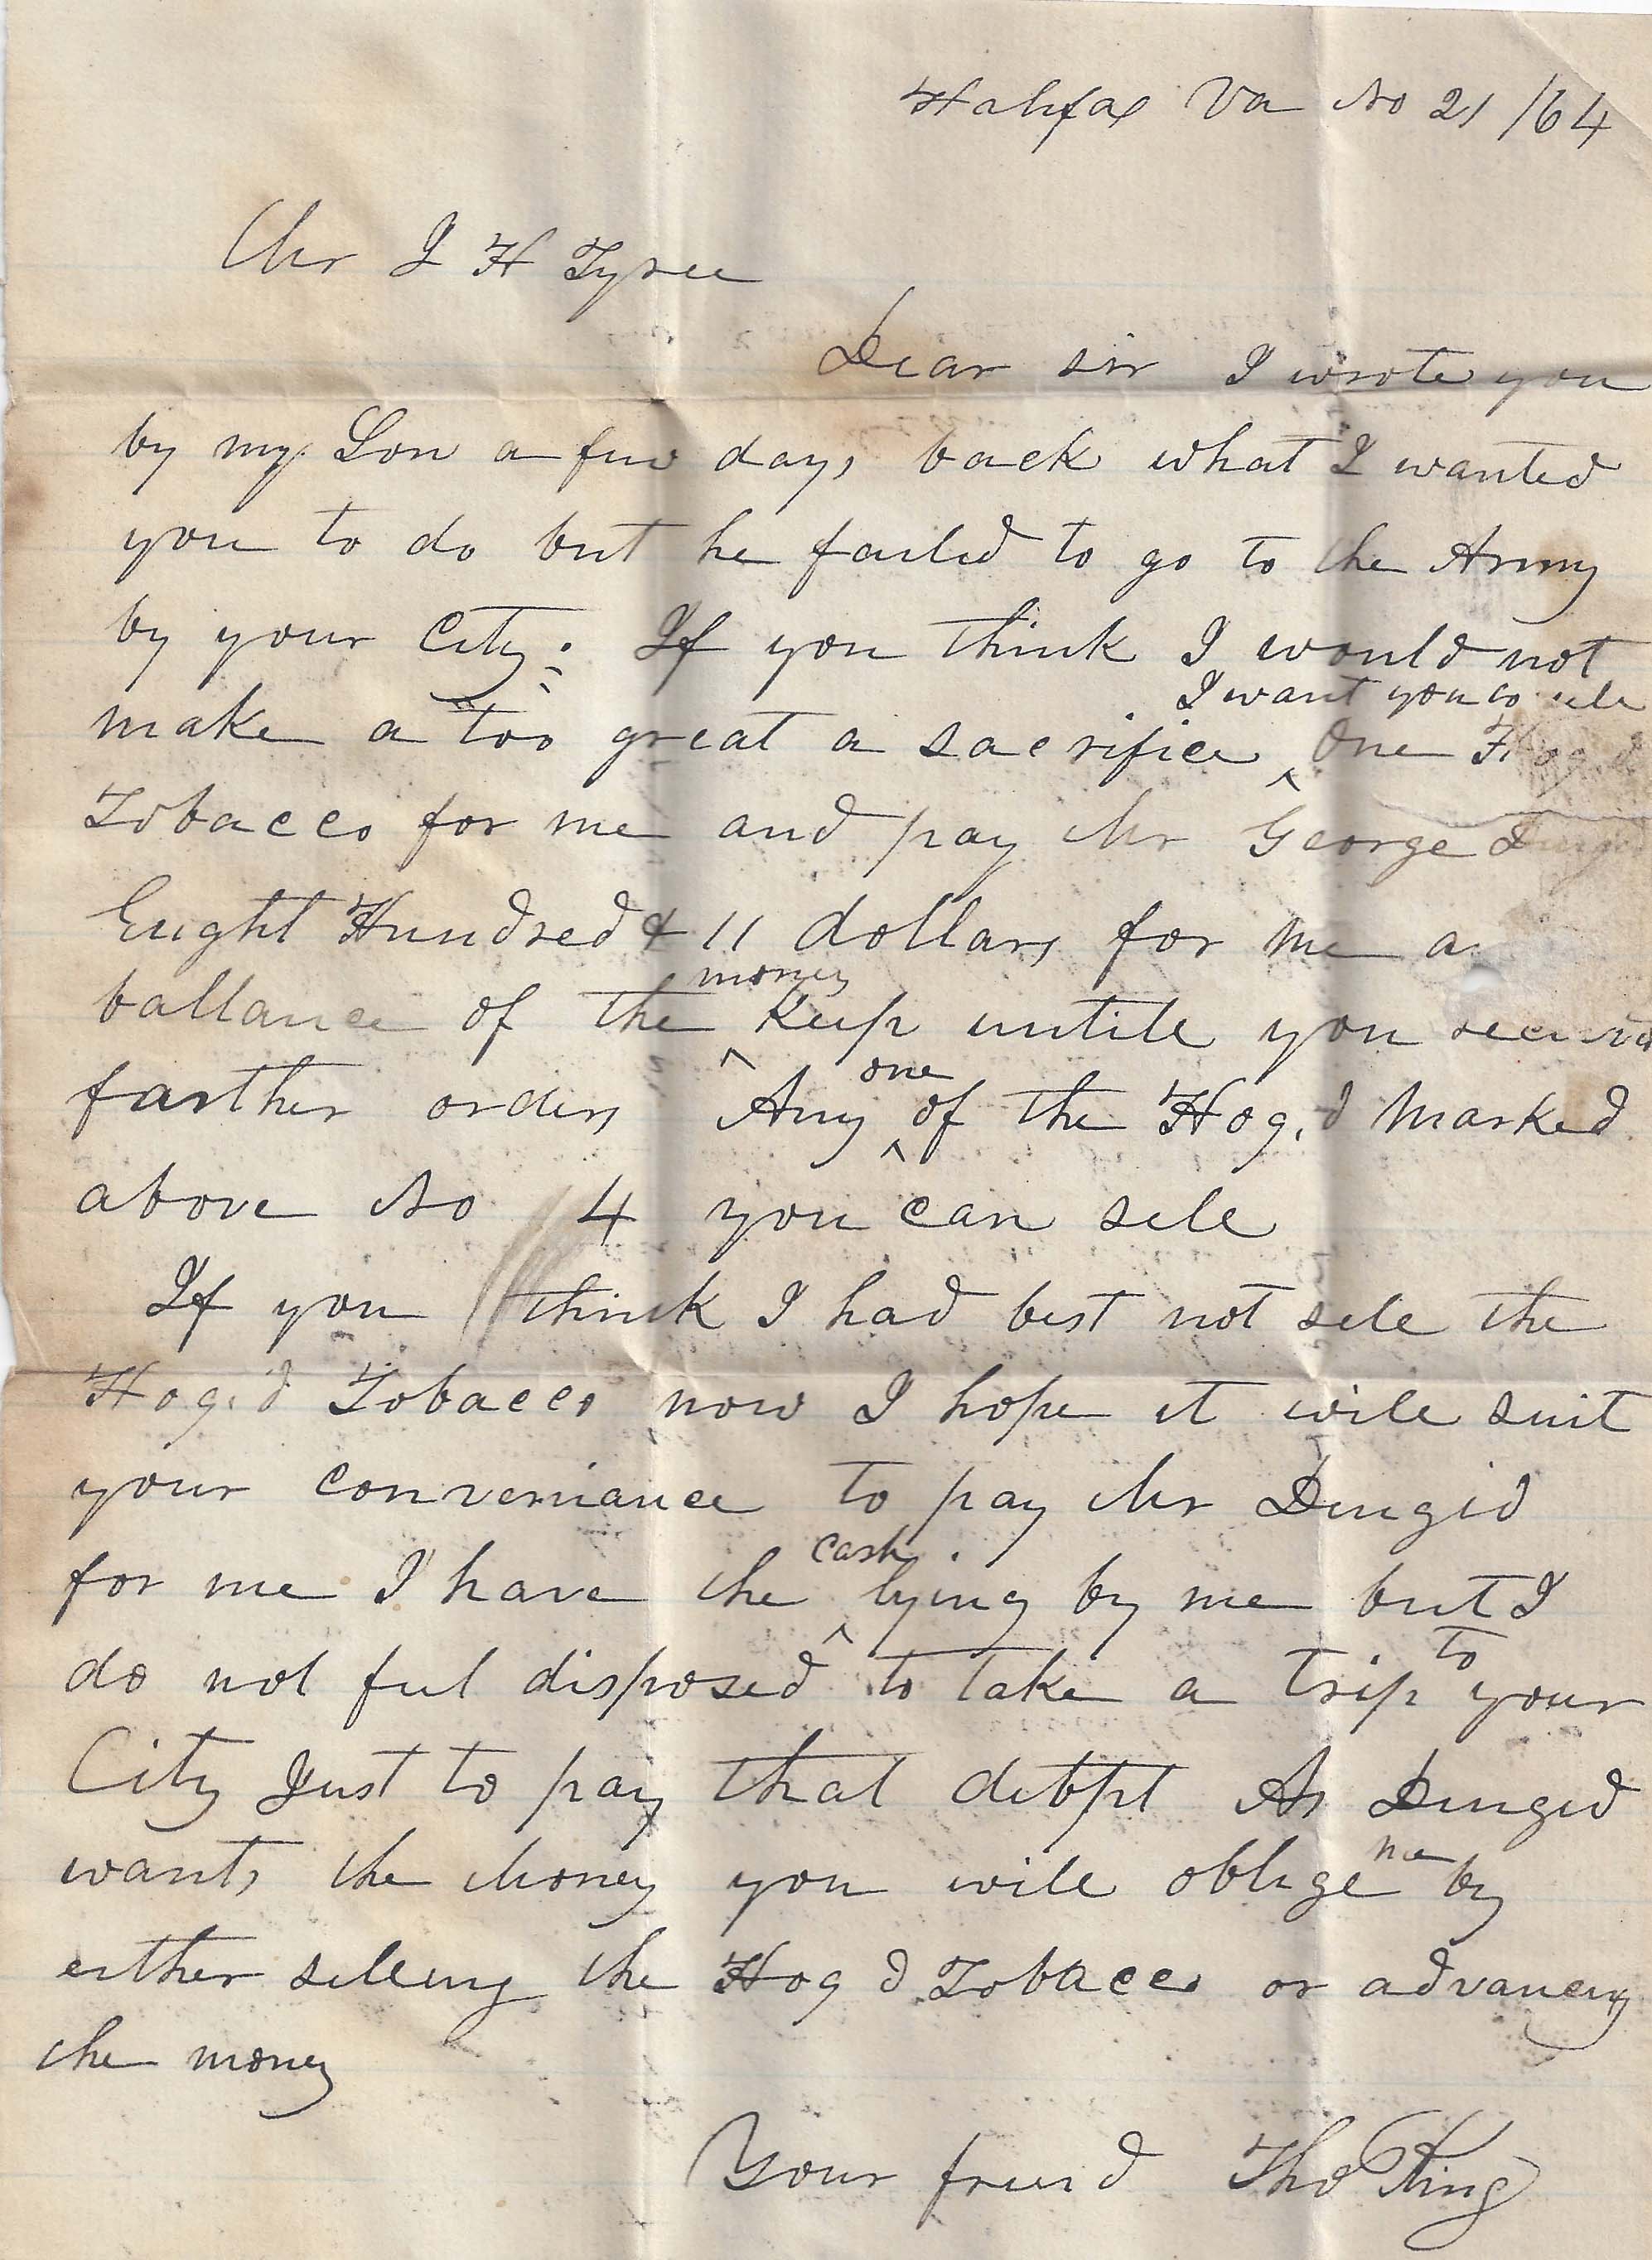 Halifax Va No 21 /64
Mr J H Tyree
Dear sir I wrote you
by my Son a few days back what I wanted
you to do but he failed to go to the Army
by your City: If you think I would not
I want you to sele
make a too great a sacrifice ^ One Hog,d
Tobacco for me and pay Mr George D
Eught Hundred & 11 dollars for me a
money
ballance of the ^ Keep untile you
one
farther orders Any ^ of the Hog,d Marked
above No 4 you can sele
If you think I had best not sele the
Hog,d Tobacco now I hope it wile suit
your conveniance to pay Mr Duigid
cash
for me I have the ^ lying by me but I
to
do not feel disposed to take a trip your
City Just to pay that debpt As Duigid
me
wants the Money you wile oblige by
either seleing the Hog d Tobacco or advancing
the money
Your friend Tho King